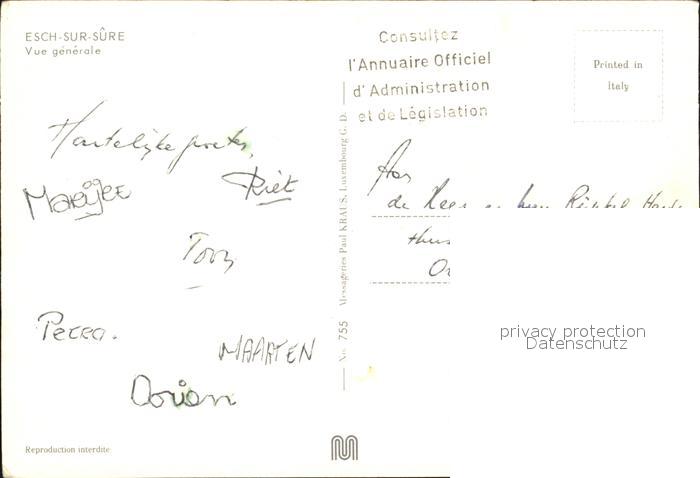 ESCH-SUR-SÛRE
Vue générale
Consultez
l'Annuaire Officiel
d'Administration
et de Législation
Printed in
Italy
Hartelijke groeten,
Marijke
Riet
Tony
Petra.
MAARTEN
Dorian
Aan
de Heer en
No. 755 Messageries Paul KRAUS, Luxembourg G. D.
privacy protection
Datenschutz
Reproduction interdite